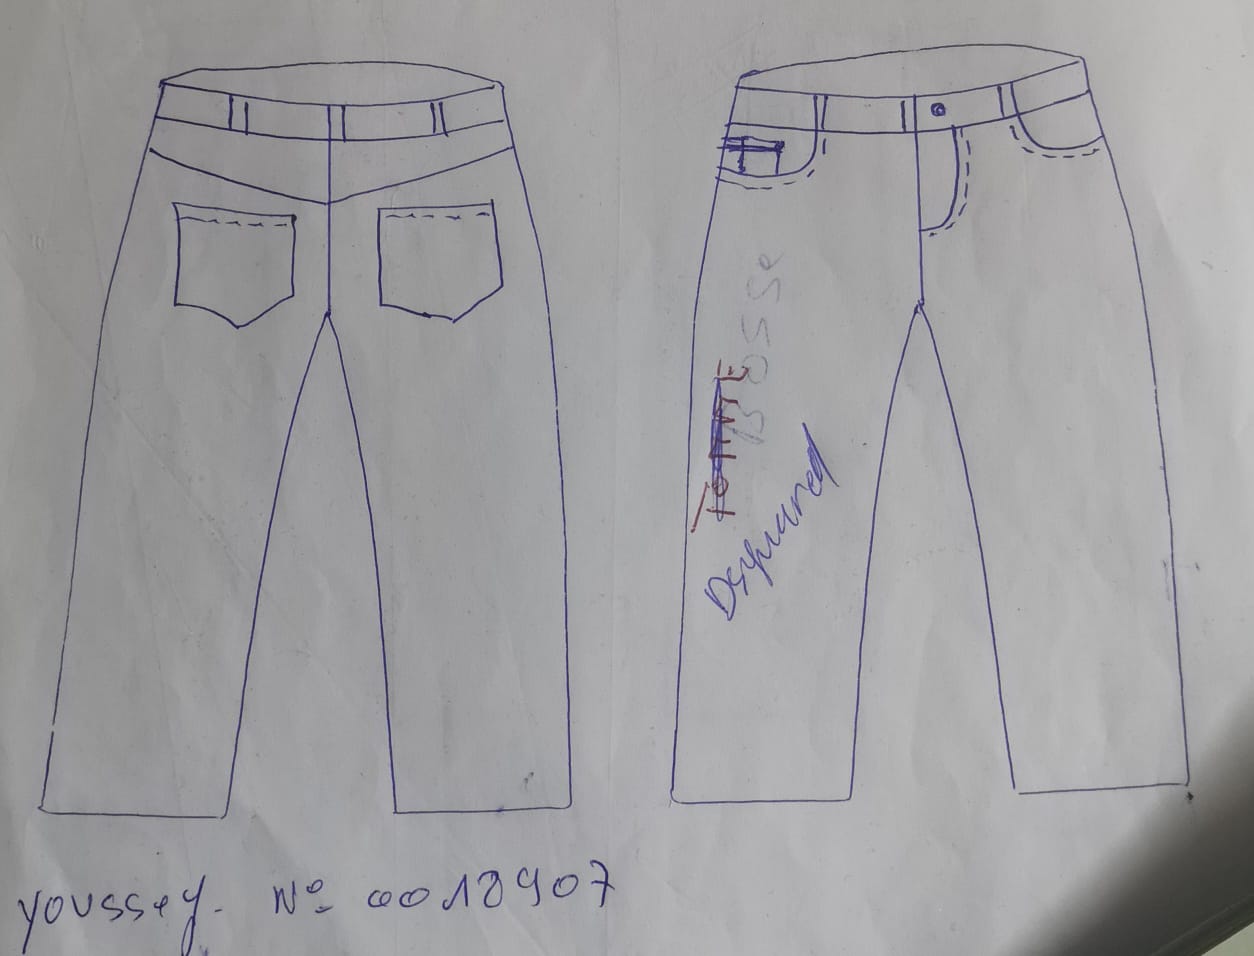 BOSSE
TOMME
Dsquared
youssef. N° 0018907